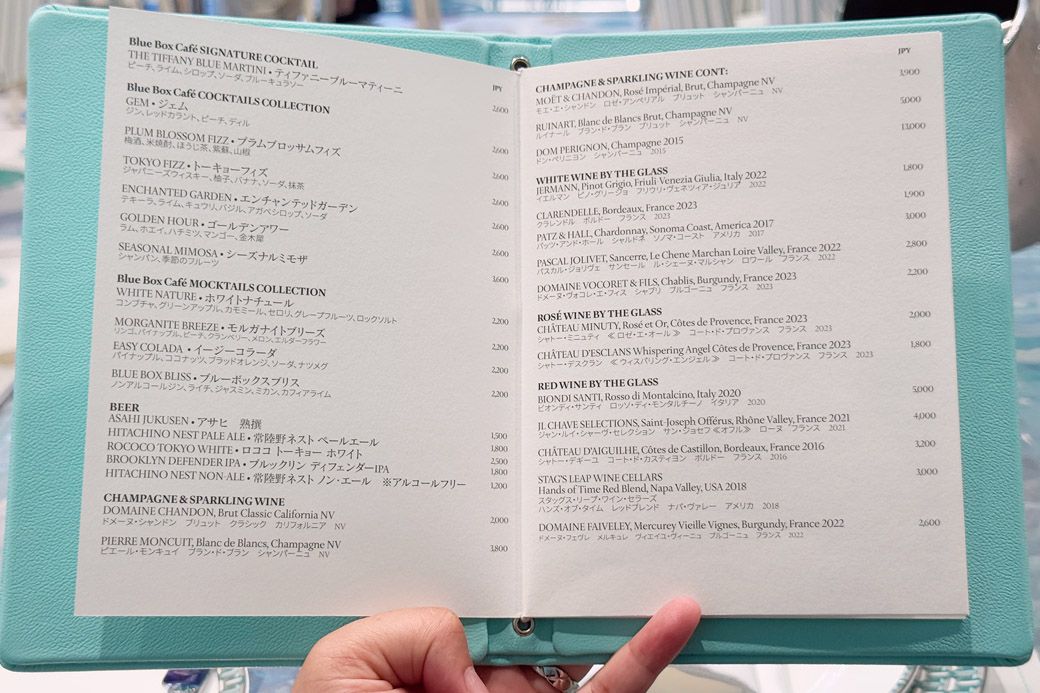 Blue Box Café SIGNATURE COCKTAIL
THE TIFFANY BLUE MARTINI • ティファニーブルーマティーニ
ピーチ、ライム、シロップ、ソーダ、ブルーキュラソー
JPY
2,600
Blue Box Café COCKTAILS COLLECTION
GEM • ジェム
ジン、レッドカラント、ピーチ、ディル
2,600
PLUM BLOSSOM FIZZ • プラムブロッサムフィズ
梅酒、米焼酎、ほうじ茶、紫蘇、山椒
2,600
TOKYO FIZZ • トーキョーフィズ
ジャパニーズウィスキー、柚子、バナナ、ソーダ、抹茶
2,600
ENCHANTED GARDEN • エンチャンテッドガーデン
テキーラ、ライム、キュウリ、バジル、アガベシロップ、ソーダ
2,600
GOLDEN HOUR • ゴールデンアワー
ラム、ホエイ、ハチミツ、マンゴー、金木犀
2,600
SEASONAL MIMOSA • シーズナルミモザ
シャンパン、季節のフルーツ
3,600
Blue Box Café MOCKTAILS COLLECTION
WHITE NATURE • ホワイトナチュール
コンブチャ、グリーンアップル、カモミール、セロリ、グレープフルーツ、ロックソルト
2,200
MORGANITE BREEZE • モルガナイトブリーズ
リンゴ、パイナップル、ピーチ、クランベリー、メロン、エルダーフラワー
2,200
EASY COLADA • イージーコラーダ
パイナップル、ココナッツ、ブラッドオレンジ、ソーダ、ナツメグ
2,200
BLUE BOX BLISS • ブルーボックスブリス
ノンアルコールジン、ライチ、ジャスミン、ミカン、カフィアライム
2,200
BEER
ASAHI JUKUSEN • アサヒ 熟撰 1,500
HITACHINO NEST PALE ALE • 常陸野ネスト ペールエール 1,800
ROCOCO TOKYO WHITE • ロココ トーキョー ホワイト 2,500
BROOKLYN DEFENDER IPA • ブルックリン ディフェンダーIPA 1,800
HITACHINO NEST NON-ALE • 常陸野ネスト ノン・エール ※アルコールフリー 1,200
CHAMPAGNE & SPARKLING WINE
DOMAINE CHANDON, Brut Classic California NV 2,000
ドメーヌ・シャンドン ブリュット クラシック カリフォルニア NV
PIERRE MONCUIT, Blanc de Blancs, Champagne NV 3,800
ピエール・モンキュイ ブラン・ド・ブラン シャンパーニュ NV
JPY
CHAMPAGNE & SPARKLING WINE CONT:
MOËT & CHANDON, Rosé Impérial, Brut, Champagne NV 3,900
モエ・エ・シャンドン ロゼ・アンペリアル ブリュット シャンパーニュ NV
RUINART, Blanc de Blancs Brut, Champagne NV 5,000
ルイナール ブラン・ド・ブラン ブリュット シャンパーニュ NV
DOM PERIGNON, Champagne 2015 13,000
ドン・ペリニヨン シャンパーニュ 2015
WHITE WINE BY THE GLASS
JERMANN, Pinot Grigio, Friuli Venezia Giulia, Italy 2022 1,800
イエルマン ピノ・グリージョ フリウリ・ヴェネツィア・ジュリア 2022
CLARENDELLE, Bordeaux, France 2023 1,900
クラレンドル ボルドー フランス 2023
PATZ & HALL, Chardonnay, Sonoma Coast, America 2017 3,000
パッツ・アンド・ホール シャルドネ ソノマ・コースト アメリカ 2017
PASCAL JOLIVET, Sancerre, Le Chene Marchan Loire Valley, France 2022 2,800
パスカル・ジョリヴェ サンセール ル・シェーヌ・マルシャン ロワール フランス 2022
DOMAINE VOCORET & FILS, Chablis, Burgundy, France 2023 2,200
ドメーヌ・ヴォコレ・エ・フィス シャブリ ブルゴーニュ フランス 2023
ROSÉ WINE BY THE GLASS
CHÂTEAU MINUTY, Rosé et Or, Côtes de Provence, France 2023 2,000
シャトー・ミニュティ ≪ロゼ・エ・オール≫ コート・ド・プロヴァンス フランス 2023
CHÂTEAU D'ESCLANS Whispering Angel Côtes de Provence, France 2023 1,800
シャトー・デスクラン ≪ウィスパリング・エンジェル≫ コート・ド・プロヴァンス フランス 2023
RED WINE BY THE GLASS
BIONDI SANTI, Rosso di Montalcino, Italy 2020 5,000
ビオンディ・サンティ ロッソ・ディ・モンタルチーノ イタリア 2020
JL CHAVE SELECTIONS, Saint-Joseph Offérus, Rhône Valley, France 2021 4,000
ジャン・ルイ・シャーヴ・セレクション サン・ジョセフ≪オフル≫ ローヌ フランス 2021
CHÂTEAU D'AIGUILHE, Côtes de Castillon, Bordeaux, France 2016 3,200
シャトー・デギーユ コート・ド・カスティヨン ボルドー フランス 2016
STAG'S LEAP WINE CELLARS 3,000
Hands of Time Red Blend, Napa Valley, USA 2018
スタッグス・リープ・ワイン・セラーズ
ハンズ・オブ・タイム レッドブレンド ナパ・ヴァレー アメリカ 2018
DOMAINE FAIVELEY, Mercurey Vieille Vignes, Burgundy, France 2022 2,600
ドメーヌ・フェヴレ メルキュレ ヴィエイユ・ヴィーニュ ブルゴーニュ フランス 2022